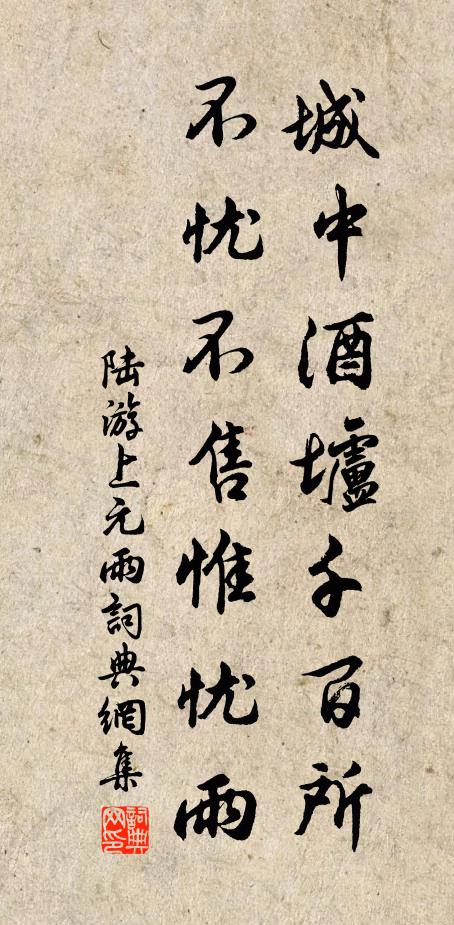 城中酒壚千百所
不忧不售惟忧雨
陆游上元雨詞典網集
詞典網印